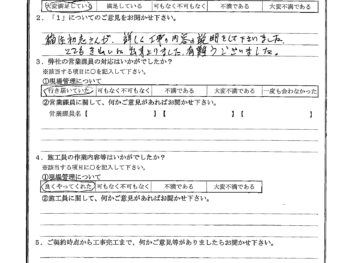 大変満足している 満足している 可もなく不可もなく 不満である 大変不満である
2．「1」についてのご意見をお聞かせ下さい。
詳しく工事内容の説明をして下さいました
とても安心して出来上りました。有難うございました。
3．弊社の営業課員の対応はいかがでしたか？
※該当する項目に○を記入して下さい。
①現場管理について
行き届いていた 可もなく不可もなく 不満である 大変不満である 一度も会わなかった
②営業課員に関して、何かご意見があればお聞かせ下さい。
営業課員名【 】【 】【 】
4．施工員の作業内容等はいかがでしたか？
※該当する項目に○を記入して下さい。
①現場管理について
良くやってくれた 可もなく不可もなく 不満である 大変不満である
②施工員に関して、何かご意見があればお聞かせ下さい。
5．ご契約時点から工事完工まで、何かご意見等がありましたらお聞かせ下さい。